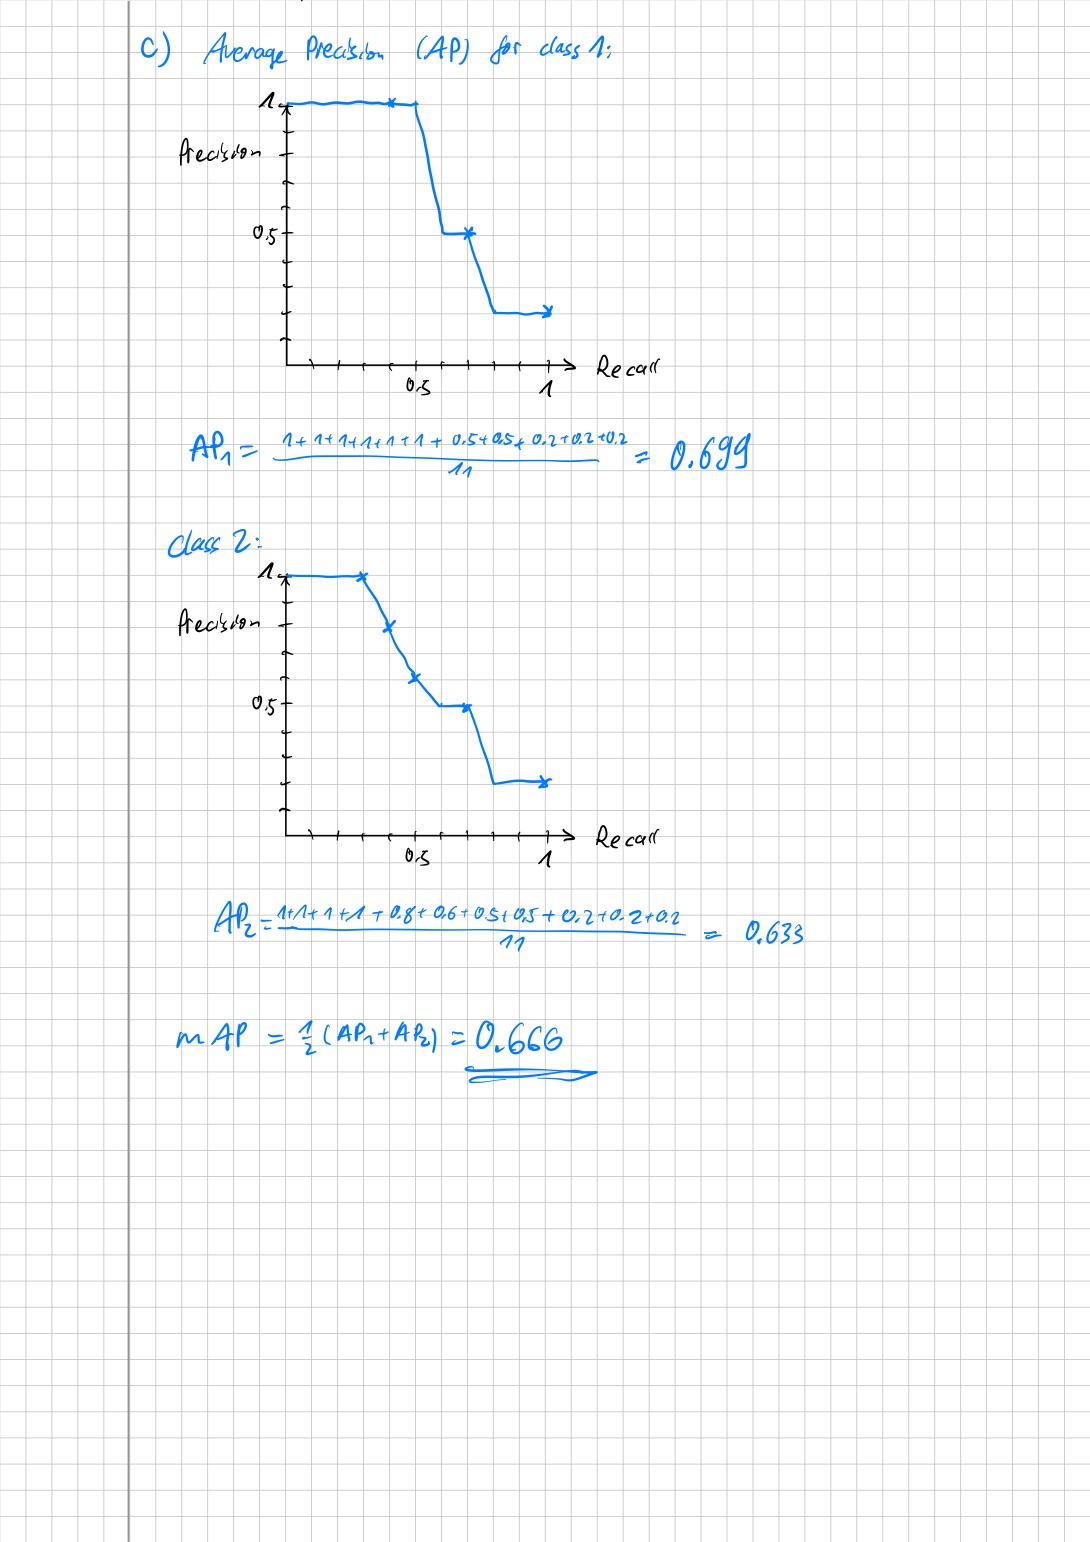 c) Average Precision (AP) for class 1:
1
Precision
0.5
Recall
0.5
1
AP₁ = 1+1+1+1+1+1+0.5+0.5+0.2+0.2+0.2 / 11 = 0.699
Class 2:
1
Precision
0.5
Recall
0.5
1
AP₂ = 1+1+1+1+0.8+0.6+0.5+0.5+0.2+0.2+0.2 / 11 = 0.633
mAP = 1/2 (AP₁+AP₂) = 0.666